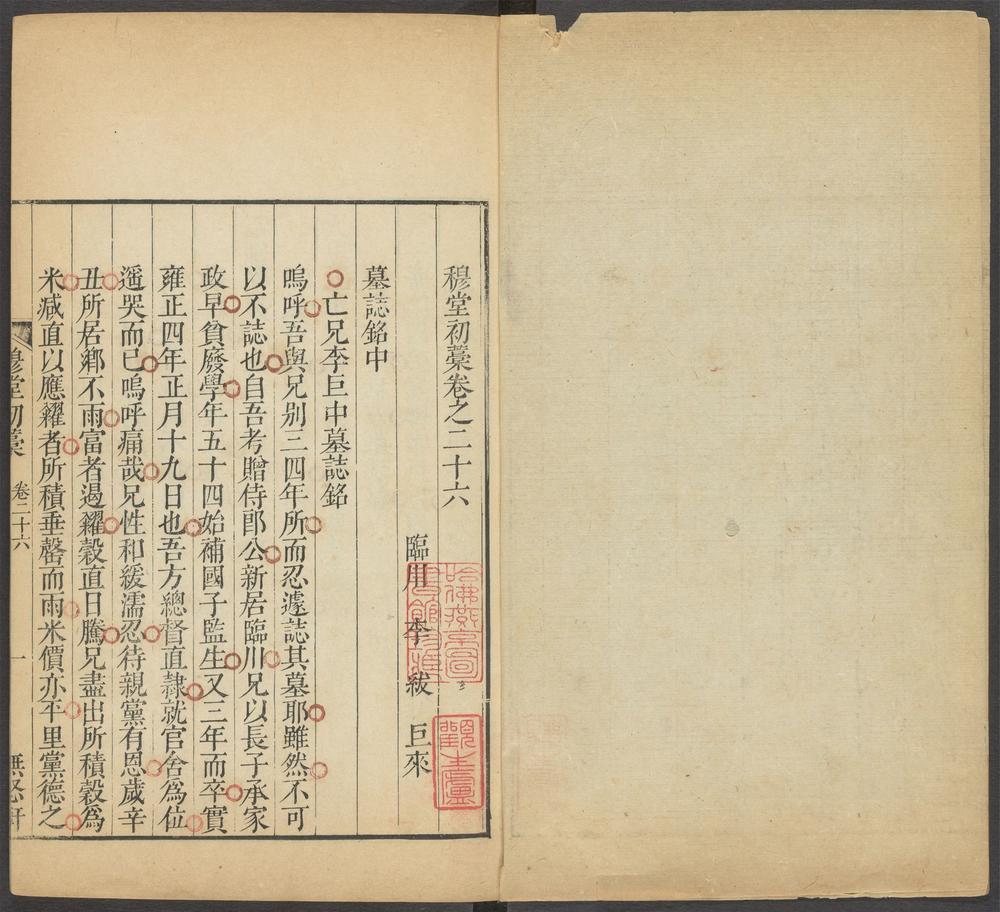 穆堂初藳卷之二十六
臨川 李 紱 巨來
墓誌銘中
亡兄李巨中墓誌銘
嗚呼吾與兄别三四年所而忍遽誌其墓耶雖然不可
以不誌也自吾考贈侍郎公新居臨川兄以長子承家
政早貧廢學年五十四始補國子監生又三年而卒實
雍正四年正月十九日也吾方總督直隸就官舍爲位
遥哭而已嗚呼痛哉兄性和緩濡忍待親黨有恩歲辛
丑所居鄉不雨富者遏糴穀直日騰兄盡出所積穀爲
米減直以應糴者所積垂罄而雨米價亦平里黨德之
穆堂初藳 卷二十六 一 無怒軒
哈佛燕京圖
書館珍藏
觀生廬